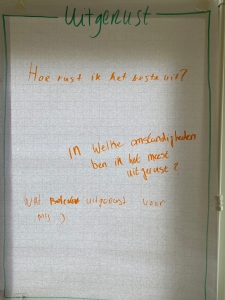 Uitgerust
Hoe rust ik het beste uit?
In welke omstandigheden
ben ik het meest
uitgerust?
Wat betekent uitgerust voor
mij :)